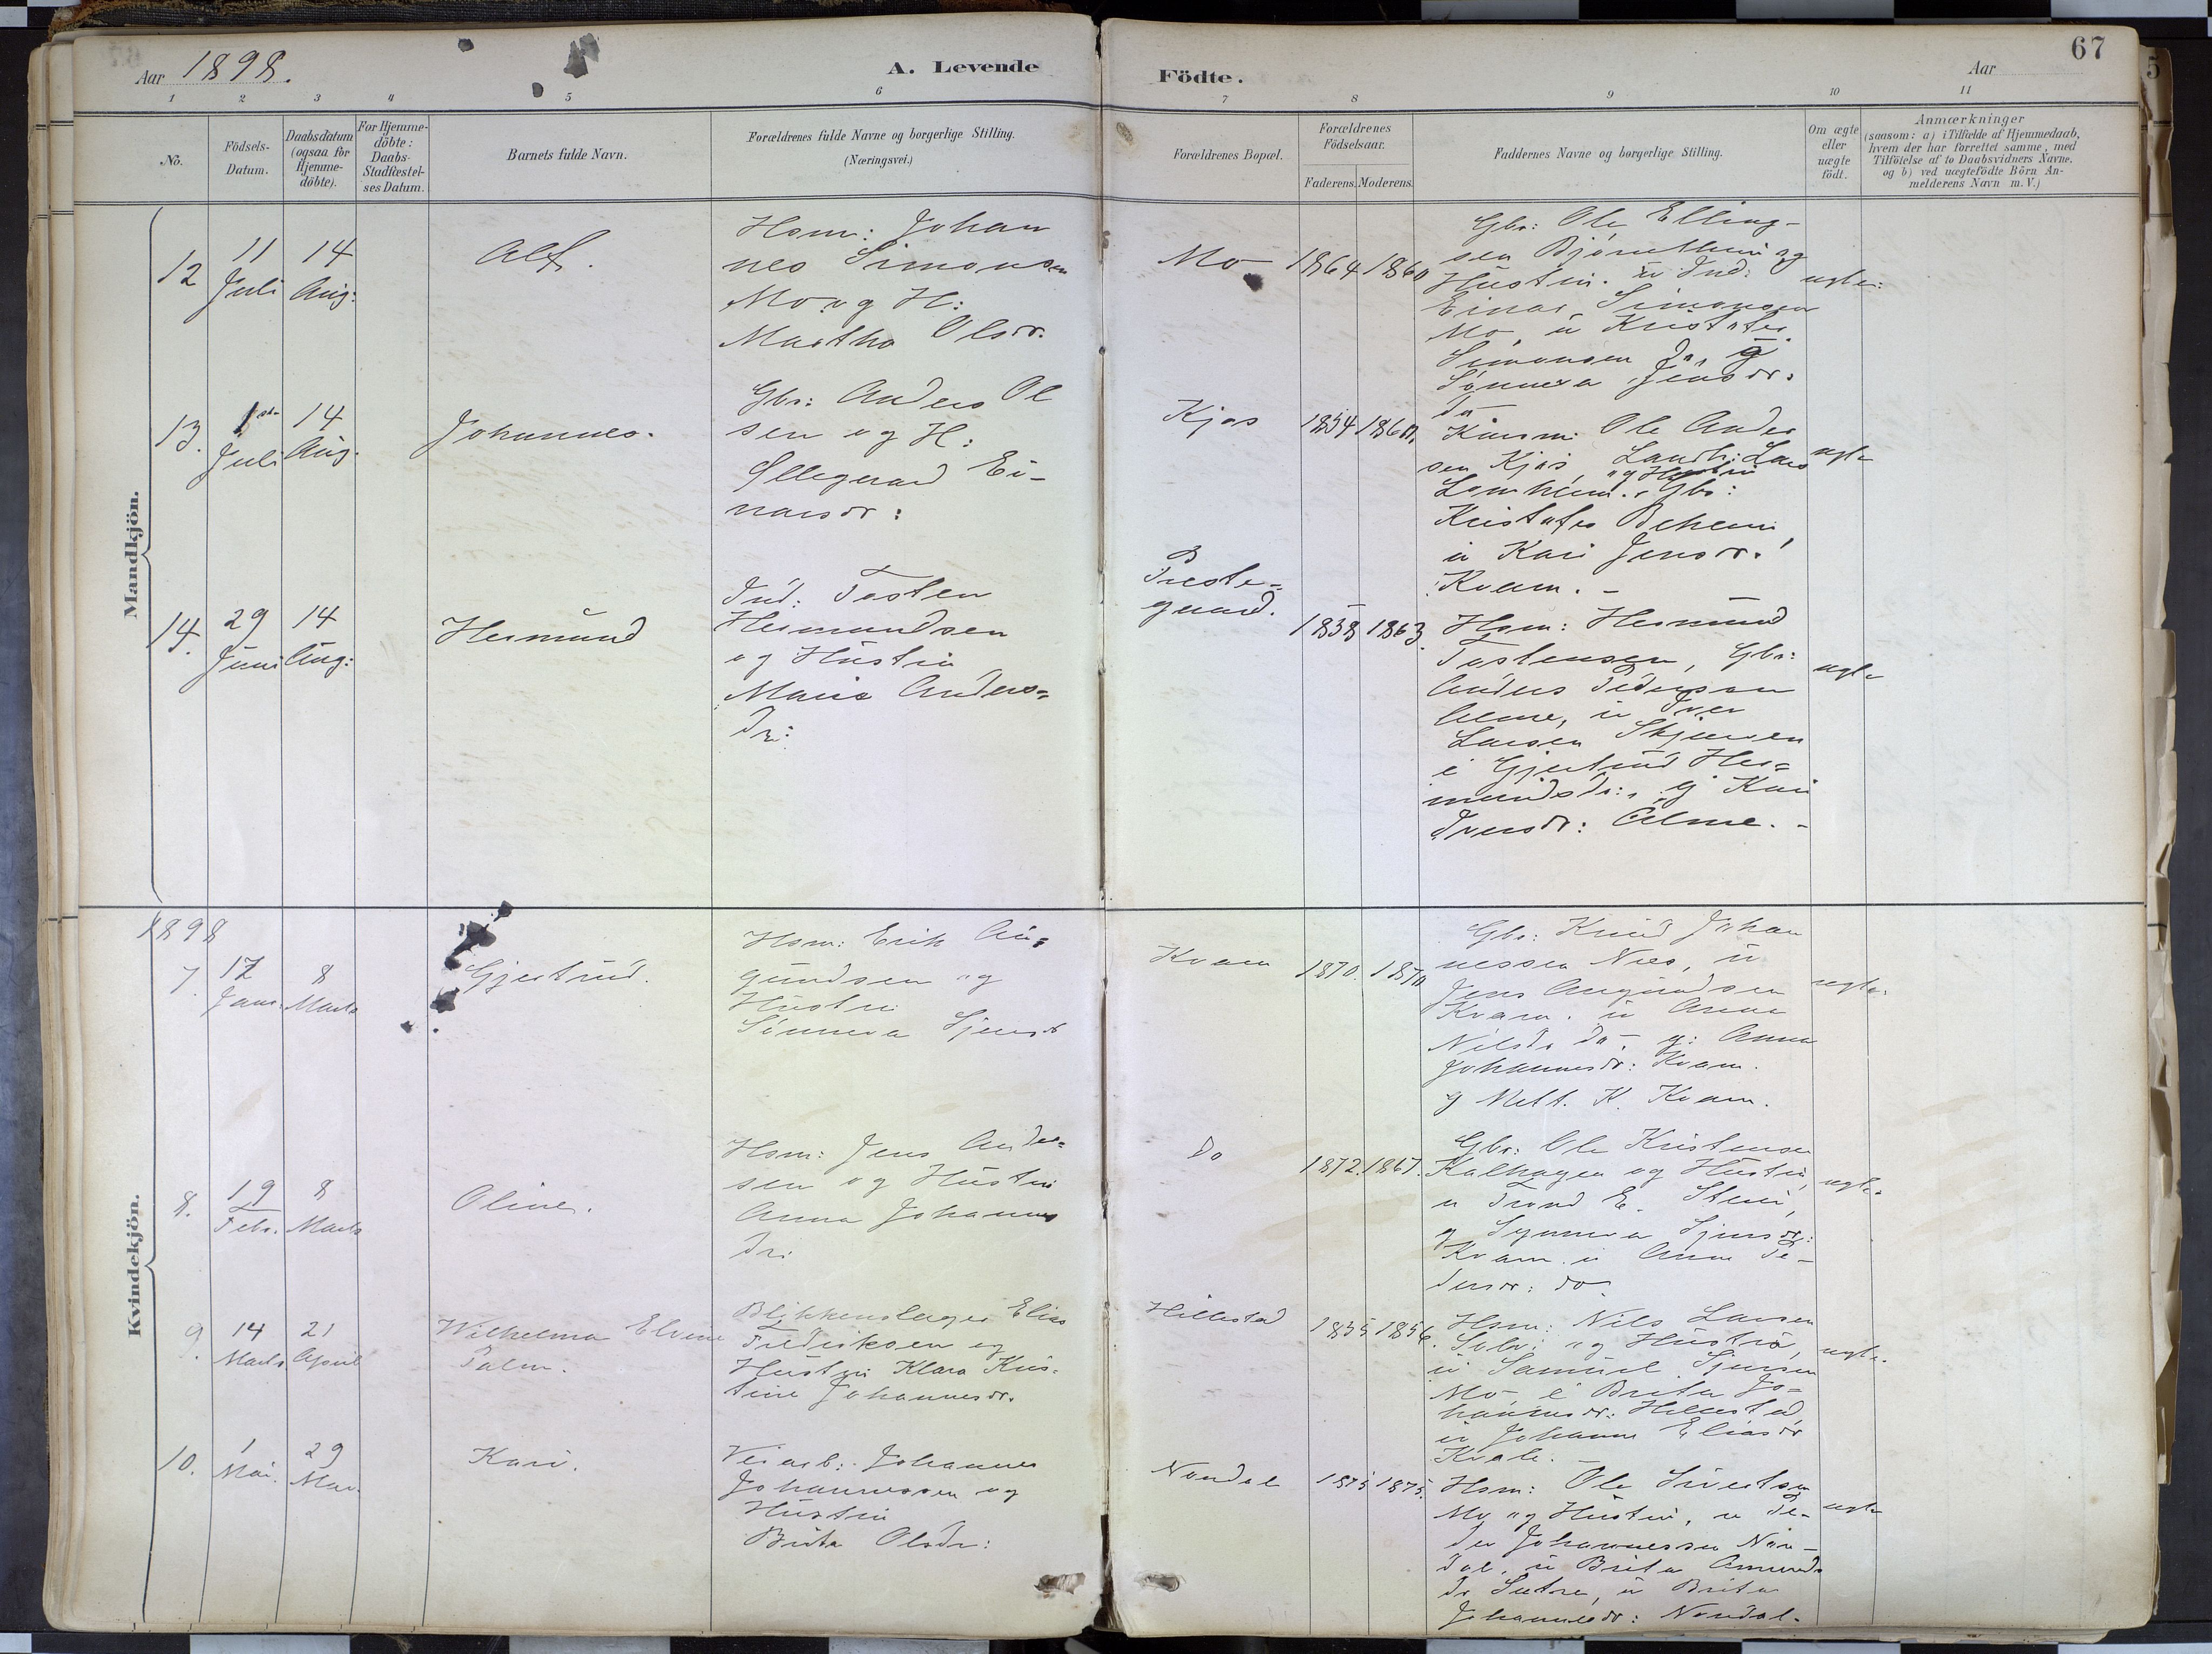 67
Aar 1898.
A. Levende Födte.
Aar
1 2 3 4 5 6 7 8 9 10 11
No.
Födsels-
Datum.
Daabsdatum
(ogsaa for
Hjemme-
döbte).
For Hjemme-
döbte:
Daabs-
Stadfestel-
ses Datum.
Barnets fulde Navn.
Forældrenes fulde Navne og borgerlige Stilling.
(Næringsvei.)
Forældrenes Bopæl.
Forældrenes
Födselsaar.
Faderens. Moderens.
Faddernes Navne og borgerlige Stilling.
Om ægte
eller
uægte
födt.
Anmærkninger
(saasom: a) i Tilfælde af Hjemmedaab,
hvem der har forrettet samme, med
Tilföielse af to Daabsvidners Navne.
og b) ved uægtefödte Börn An-
melderens Navn m. V.)
Mandkjön.
12
11
Juli
14
Aug:
Alf.
Hsm: Johan
nes Simonsen
Mo og H:
Martha Olsdr.
Mo
1864 1860
Gbr: Ole Elling-
sen Bjørnetheim og
Hustru. u Ind:
Einar Simonsen
Mo, u Kristofer
Simonsen do, g
Sønneva Jensdr:
do
ægte:
13.
1ste
Juli
14
Aug.
Johannes.
Gbr: Anders Ol
sen og H:
Øllegaard Ei-
narsdr:
Kjos
1854 1860.
Kaarm: Ole Ander
sen Kjos, Landh: Lars
og Hustru
Lomheim. Gbr:
Kristofer Boheim,
u Kari Jensdr.
Kvam. -
ægte
14.
29
Juni
14
Aug:
Hermund
Ind: Tosten
Hermundsen
og Hustru
Maria Anders=
dr:
Preste-
gaard.
1838 1863.
Hsm: Hermund
Tostensen, Gbr:
Anders Pedersen
Alme, u Iver
Larsen Skjerven
e Gjertrud Her=
mundsdr:, g Kari
Iversdr: Alme. -
ægte
Kvindekjön.
1898
7.
17
Janr.
8
Marts
Gjertrud.
Hsm: Erik An=
gundsen og
Hustru
Sönneva Sjursdr
Kvam
1870. 1870
Gbr: Knud Johan
nessen Nes, u
Jens Angundsen
Kvam. u Anna
Nilsdr do, g: Anna
Johannesdr: Kvam.
g Mett. K. Kvam.
ægte.
8.
19
Febr.
8
Marts
Oline.
Hsm: Jens Ander=
sen og Hustru
Anna Johannes
dr:
Do
1872. 1867.
Gbr: Ole Kristensen
Kalhagen og Hustru,
u Trond E. Steni,
g Synneva Sjursdr:
Kvam. u Anna Pe-
dersdr: do.
ægte.
9.
14
Marts
21
April
Wilhelma Elvine
Palm.
Blikkenslager Elias
Fredriksen og
Hustru Klara Kris-
tine Johannesdr.
Hillestad
1835 1856.
Hsm: Nils Larsen
Solv: og Hustru,
u Samuel Sjursen
Mo, e Brita Jo=
hannesdr: Hillestad,
u Johanne Eliasdr
Kvale. -
ægte.
10.
1
Mai.
29
Mai.
Kari.
Veiarb: Johannes
Johannessen og
Hustru
Brita Olsdr:
Nondal
1875 1875.
Hsm: Ole Sivertsen
Mo og Hustru, u Pe-
der Johannessen Non-
dal, u Brita Amunds
dr Sætre, u Brita
Johannesdr: Nondal.
ægte